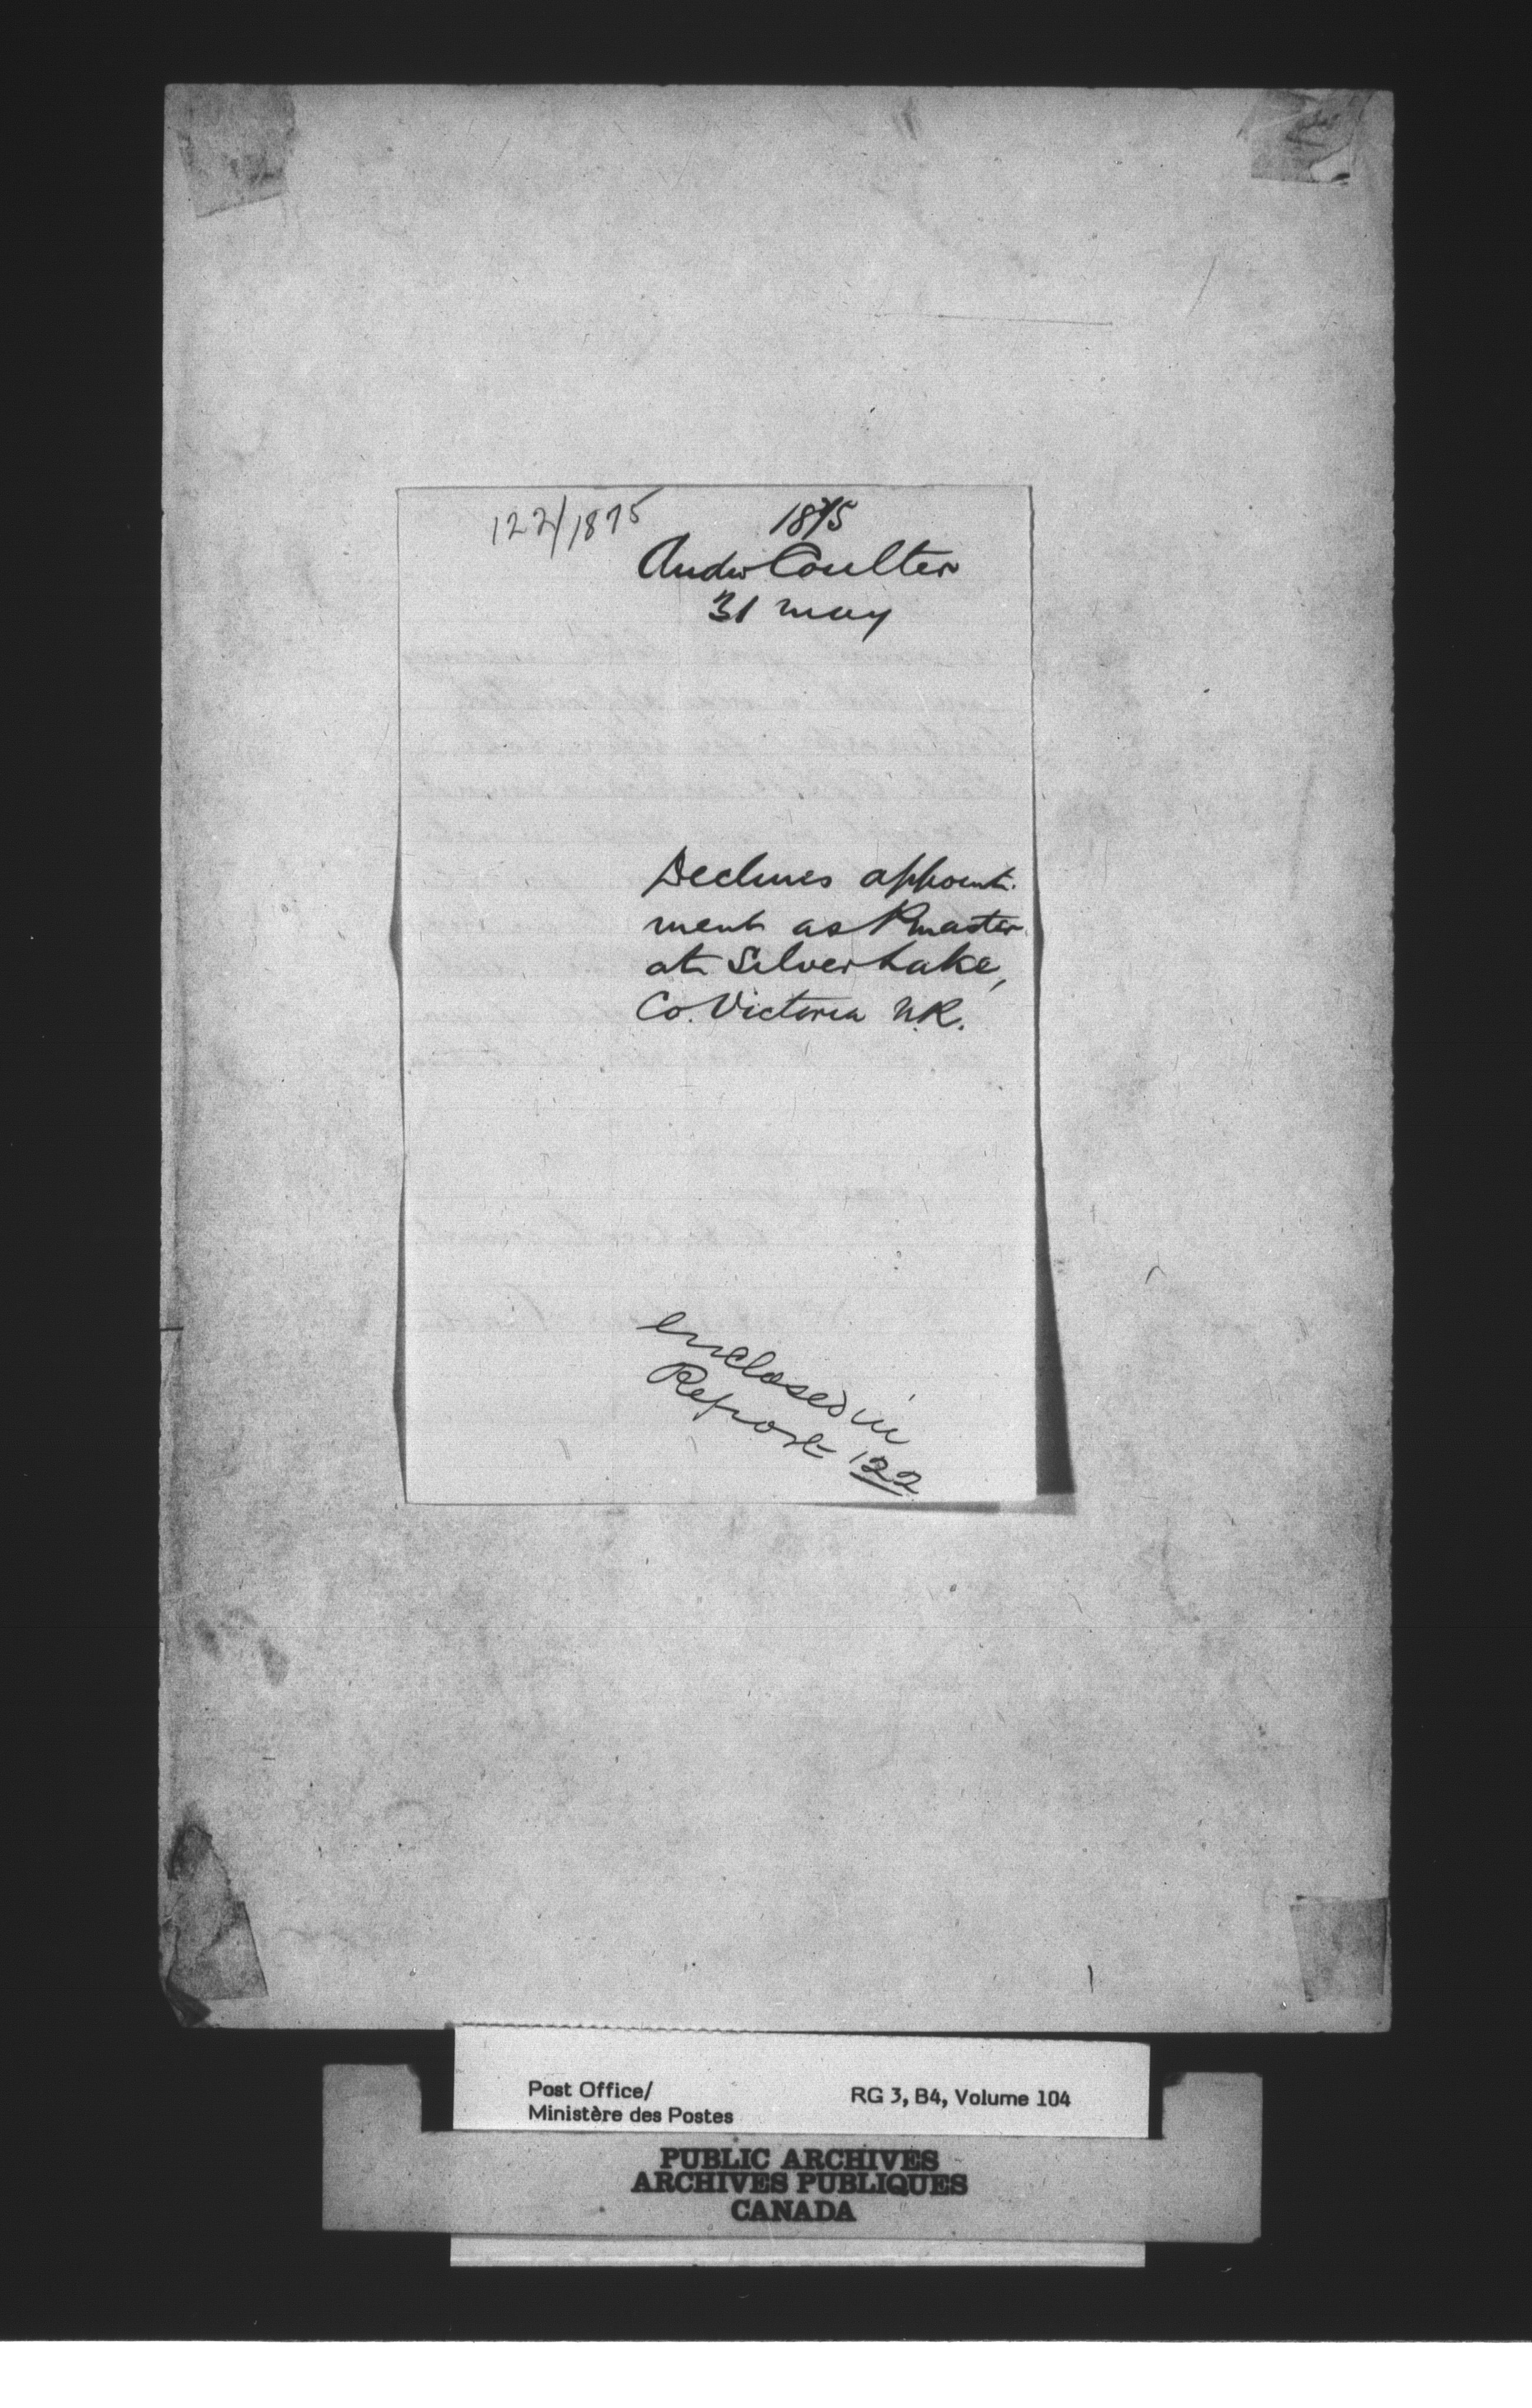 122/1875
1875
Andw Coulter
31 May
Declines appoint-
ment as PMaster
at Silver Lake,
Co. Victoria N.R.
enclosed in
Report 122
Post Office/
Ministère des Postes
RG 3, B4, Volume 104
PUBLIC ARCHIVES
ARCHIVES PUBLIQUES
CANADA